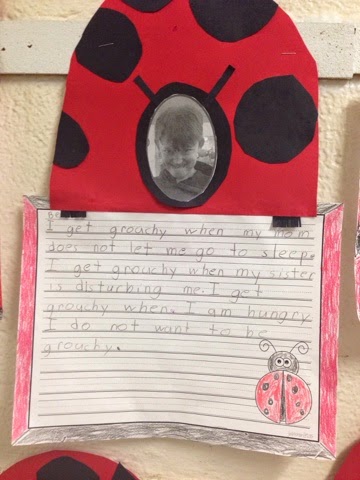 I get grouchy when my mom
does not let me go to sleep.
I get grouchy when my sister
is disturbing me. I get
grouchy when. I am hungry
I do not want to be
grouchy.